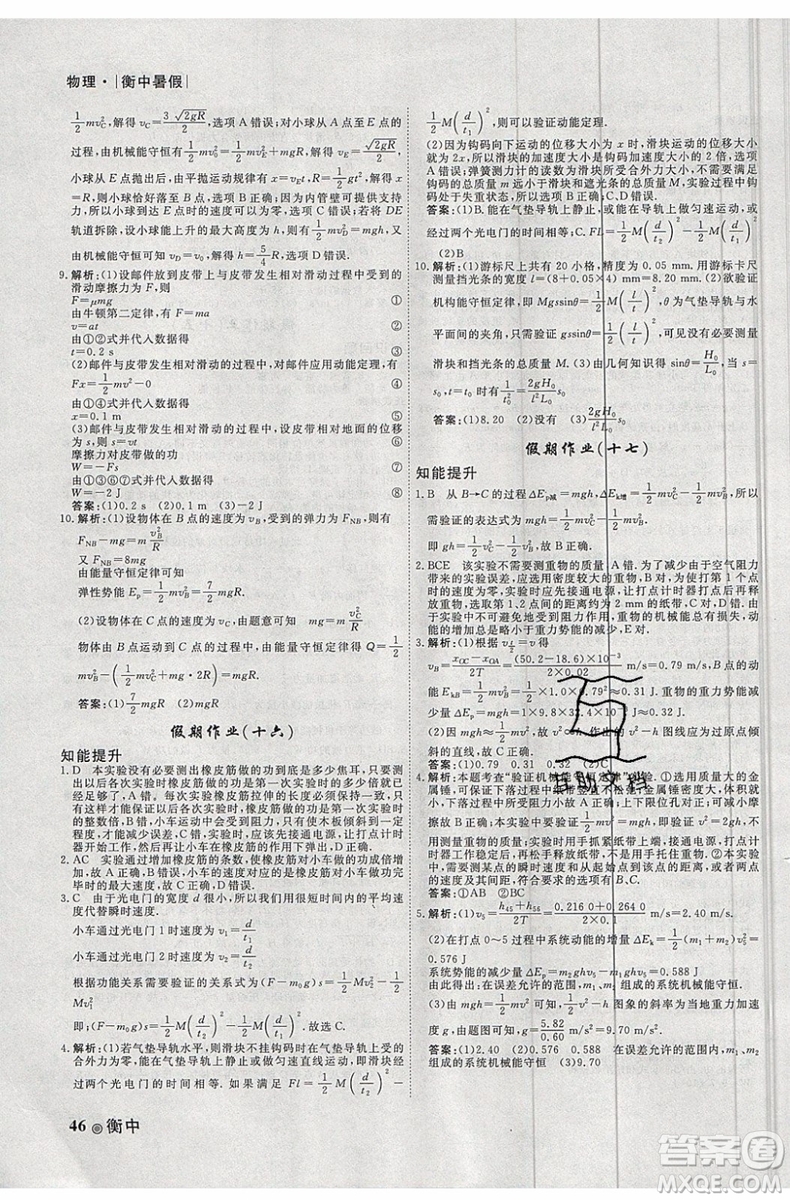 物理·|衡中暑假|
1/2mv_C²,解得 v_C=3√(2gR)/2,选项 A 错误;对小球从 A 至 E 点的
过程,由机械能守恒有 1/2mv_E²=mgR/4,解得 v_E=√(2gR)/2,
小球从 E 点抛出后,由平抛运动规律有 x=v_E t,R=1/2gt²,解得 x=
R,则小球恰好落至 B 点,选项 B 正确;因为内管壁可提供支持
力,所以小球到达 E 点时的速度可以为零,选项 C 错误;若将 DE
轨道拆除,设小球能上升的最大高度为 h,则有 1/2mv_D²=mgh,
又由机械能守恒可知 v_D=v_0,解得 h=5/4R,选项 D 错误。
9.解析:(1)设邮件放到皮带上与皮带发生相对滑动过程中受到的
滑动摩擦力为 F,则
F=μmg ①
由牛顿第二定律,有 F=ma ②
v=at ③
由①②③式并代入数据得
t=0.2 s ④
(2)邮件与皮带发生相对滑动的过程中,对邮件应用动能定理,有
Fx=1/2mv²-0 ⑤
由①⑤式并代入数据得
x=0.1 m ⑥
(3)邮件与皮带发生相对滑动的过程中,设皮带相对地面的位移
为 s,则 s=vt ⑦
摩擦力对皮带做的功
W=-Fs ⑧
由①③⑥⑦式并代入数据得
W=-2 J
答案:(1)0.2 s (2)0.1 m (3)-2 J
10.解析:(1)设物体在 B 点的速度为 v_B,受到的弹力为 F_NB,则有
F_NB-mg=m v_B²/R
又 F_NB=8mg
由能量守恒定律可知
弹性势能 E_p=1/2mv_B²=7/2mgR
(2)设物体在 C 点的速度为 v_C,由题意可知 mg=m v_C²/R
物体由 B 点运动到 C 点的过程中,由能量守恒定律得 Q=1/2
mv_B²-(1/2mv_C²+mg·2R)=mgR
答案:(1)7/2mgR (2)mgR
假期作业(十六)
知能提升
1.D 本实验没有必要测出橡皮筋做的功到底是多少焦耳,只要测
出以后各次实验时橡皮筋做的功是第一次实验时的多少倍就已
经足够了,A 错。每次实验橡皮筋拉伸的长度必须保持一致,只有
这样才能保证以后各次实验时橡皮筋做的功是第一次实验时
的整数倍,B 错。小车运动中会受到阻力,可以使木板倾斜到一定
程度,以减小误差,C 错。实验时,应该先接通电源,让打点计时器
开始工作,然后再让小车在橡皮筋的作用下弹出,D 正确。
2.AC 实验通过增加橡皮筋的条数,使橡皮筋对小车做的功成倍增
加,A 正确,B 错误;小车最终做匀速运动,应选择橡皮筋对小车做功完
毕时的最大速度,C 正确,D 错误。
3.C 由于光电门的宽度 d 很小,所以我们用很短时间内的平均速
度代替瞬时速度。
小车通过光电门 1 时速度为 v_1=d/t_1
小车通过光电门 2 时速度为 v_2=d/t_2
根据功能关系需要验证的关系式为(F-m_0g)s=1/2Mv_2²-1/2
Mv_1²
所以得:(F-m_0g)s=1/2M(d/t_2)²-1/2M(d/t_1)²,故选 C。
4.解析:(1)若气垫导轨水平,则滑块不挂钩码时在气垫导轨上受的
合外力为零,能在气垫导轨上静止或做匀速直线运动,或滑块经
过两个光电门的时间相等。如果满足 Fl=1/2M(d/t_2)²-
1/2M(d/t_1)²,则可以验证动能定理。
(2)因为钩码向下运动的位移大小为 x 时,滑块运动的位移大小
就为 2x,所以滑块的加速度大小是钩码加速度大小的 2 倍,选项 A
错误;弹簧测力计的读数为滑块所受合外力大小,不需要满足
钩码的总质量 m 远小于滑块和遮光条的总质量 M,实验过程中钩
码处于失重状态,所以 B 正确,C、D 错误。
答案:(1)B.能在气垫导轨上静止,或能在气垫导轨上做匀速运动,或
经过两个光电门的时间相等 C.Fl=1/2M(d/t_2)²-1/2M(d/t_1)²
(2)B
10.解析:(1)游标尺上共有 20 小格,精度为 0.05 mm.用游标卡尺
测量挡光条的宽度 l=(8+0.05×4)mm=8.20 mm.(2)欲验证
机械能守恒定律,即 Mgs sinθ=1/2M(l/t)²,θ 为气垫导轨与水
平面间的夹角,只需验证 gs sinθ=1/2(l/t)²,可见没有必要测量
滑块和挡光条的总质量 M.(3)由几何知识得 sinθ=H_0/L_0,当 s=
s_0,t=t_0 时,有 1/t_0²=2gH_0/(l²L_0) s_0
答案:(1)8.20 (2)没有 (3)2gH_0/(l²L_0) s_0
假期作业(十七)
知能提升
1.B 从 B→C 的过程 ΔE_p减=mgh,ΔE_k增=1/2mv_C²-1/2mv_B²,所以
需验证的表达式为 mgh=1/2mv_C²-1/2mv_B²
即 gh=1/2v_C²-1/2v_B²,故 B 正确。
2.BCE 该实验不需要测重物的质量 A 错。为了减少由于空气阻力
带来的实验误差,应选用密度较大的重物,B 对;为使打第 1 个点
时的速度为零,实验应先给打点计时器通电,打点计时器打点后再释
放重物,选取第 1、2 点间的距离约为 2 mm 的纸带,C 对,D 错;
由于实验中不可避免地存在阻力作用,重物的机械能总有损失,动
能的增加总小于重力势能的减少,E 对。
3.解析:(1)根据 v̄=v_{t/2}
v_B=(x_OC-x_OA)/2T=(50.2-18.6)×10⁻³/(2×0.02) m/s=0.79 m/s,B 点的动
能 E_kB=1/2mv_B²=1/2×1×0.79² J≈0.31 J,重物的重力势能
减少量 ΔE_p=mgh=1×9.8×32.4×10⁻³ J≈0.32 J.
(2)因为 mgh=1/2mv²,所以 v²=2gh,作出 v²-h 图像应为过原点倾
斜的直线,故 C 正确。
答案:(1)0.79 0.31 0.32 (2)C
4.解析:本题考查“验证机械能守恒定律”实验。①选用质量大的金
属锤,可使下落过程中所受阻力远小于金属锤的重力,A 对;两限
位孔在同一竖直面内上下对正,B 对;上下限位孔对正,可减小摩
擦故 B 正确。②本实验需要验证 1/2mv²=mgh,即 v²/2=gh,故不
用测量重锤的质量;实验时用手抓紧纸带上端,接通电源,打点计
时器工作稳定后,再松手释放纸带,故 B 正确;本实验中,需要测
得某点的速度和从起始点到该点的距离,故测量数据时应选取距
起始点较远的点,可减小误差,故 C 正确。
答案:①AB ②BC
5.解析:(1)v_5=(h_45+h_56)/2T=(0.216 0+0.264 0)/(2×0.1) m/s=2.40 m/s.
(2)在打点 0~5 过程中系统动能的增量 ΔE_k=1/2(m_1+m_2)v_5²=
0.576 J
系统势能的减少量为 ΔE_p=m_2gh_05-m_1gh_05=0.588 J
由此得出:在误差允许的范围内,m_1、m_2 组成的系统机械能守恒。
(3)由(m_2-m_1)gh=1/2(m_1+m_2)v²知 v²/2-h 图象的斜率为当地重力加
速度 g,由图可得 g=5.82/0.60 m/s²=9.70 m/s².
答案:(1)2.40 (2)0.576 0.588 在误差允许的范围内,m_1、m_2
组成的系统机械能守恒 (3)9.70
46 衡中
答案圈
MXQE.COM